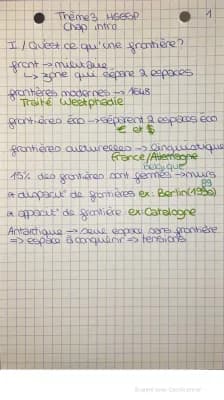 Thème 3 HGGSP
1
Chap intro
I / Qu'est ce qu'une frontière?
front → militaire
↳ zone qui sépare 2 espaces
frontières modernes → 1648
Traité Westphalie
frontières éco → séparent 2 espaces éco
€ et $
frontières culturelles → linguistique
France/Allemagne
Belgique
15% des frontières sont fermées → murs
* disparit° de frontières ex: Berlin (1990)
89
* apparit° de frontière ex: Catalogne
Antarctique → seul espace sans frontière
=> espace à conquérir => tensions